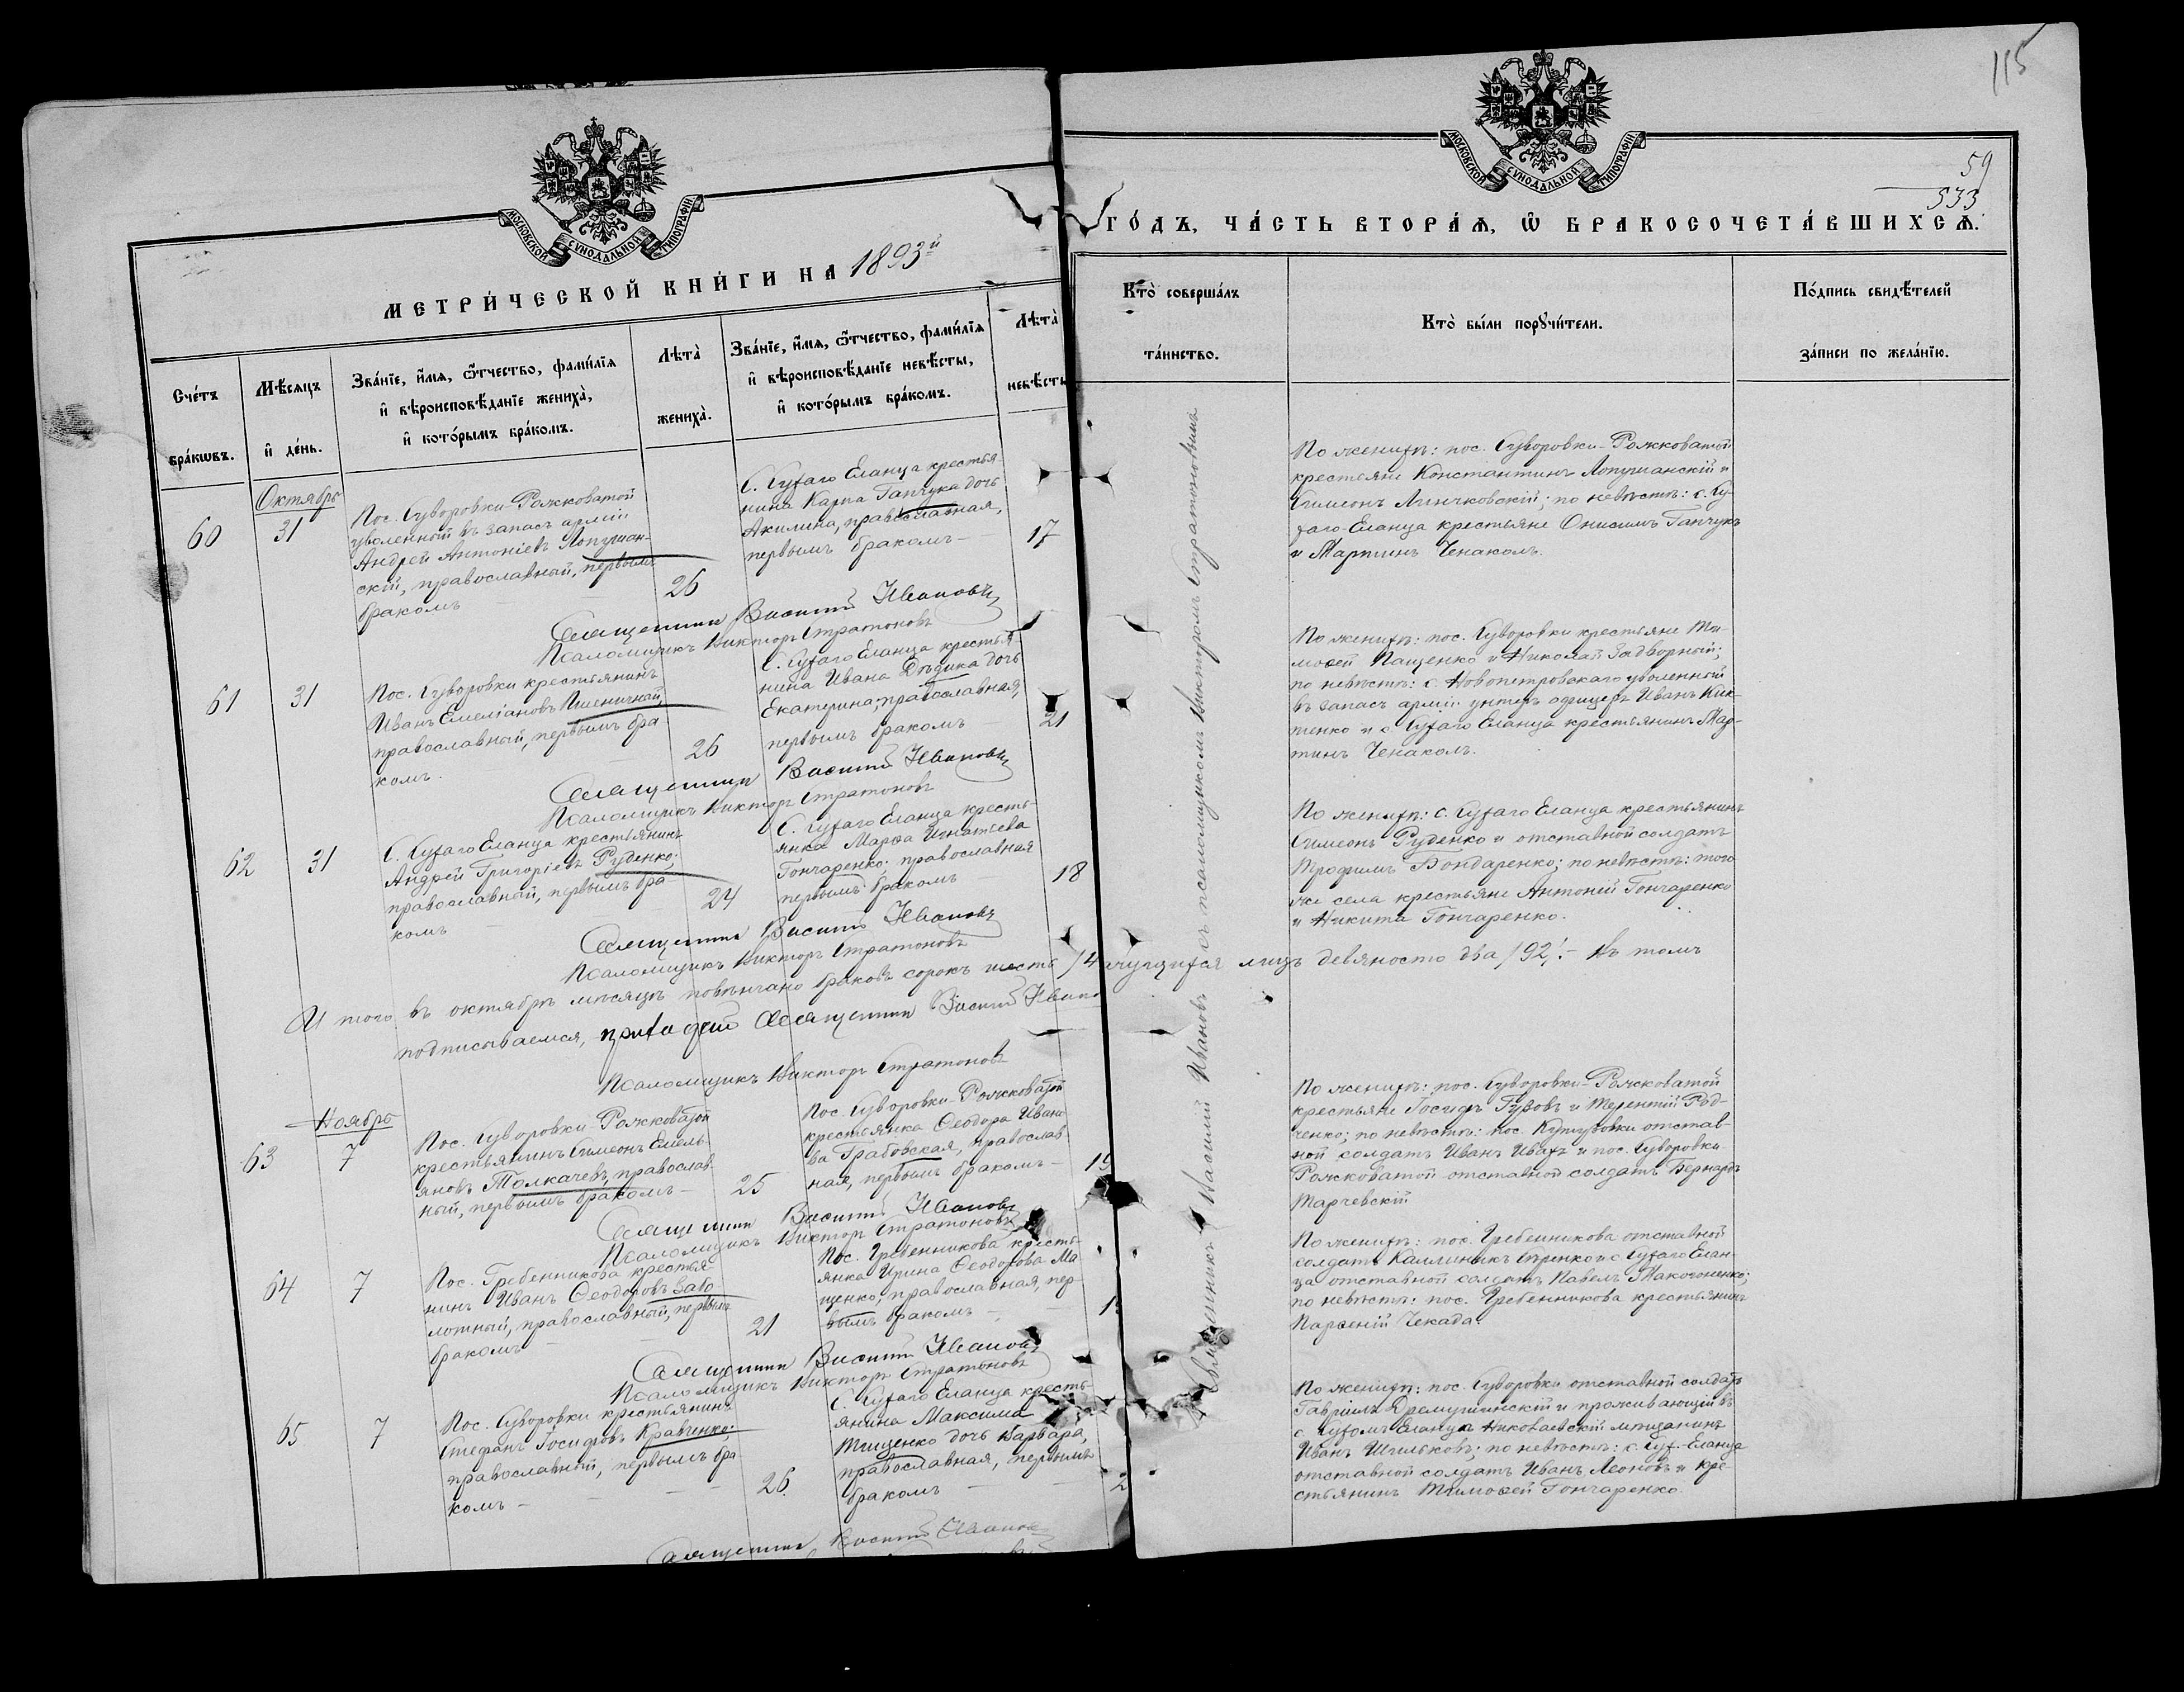 115
59
533
МОСКОВСКОЙ СѴНОДАЛЬНОЙ ТИПОГРАФІИ
МОСКОВСКОЙ СѴНОДАЛЬНОЙ ТИПОГРАФІИ
МЕТРИ́ЧЕСКОЙ КНИ́ГИ НА 1893й
ГО́ДЪ, ЧА́СТЬ ВТОРА́Ѧ, Ѡ БРАКОСОЧЕТА́ВШИХСѦ.
Сче́тъ
бра́кѡвъ.
Мѣ́сѧцъ
и҆ де́нь.
Зва́нїе, и҆́мѧ, ѻ҆́тчество, фами́лїѧ
и҆ вѣроисповѣ́данїе жениха̀,
и҆ кото́рымъ бра́комъ.
Лѣта̀
жениха̀.
Зва́нїе, и҆́мѧ, ѻ҆́тчество, фами́лїѧ
и҆ вѣроисповѣ́данїе невѣ́сты,
и҆ кото́рымъ бра́комъ.
Лѣта̀
невѣ́сты
Кто̀ соверша́лъ
та́инство.
Кто̀ бы́ли порꙋчи́тели.
По́дпись свидѣ́телей
за́писи по жела́нїю.
Октябрь
60
31
Пос. Суворовки-Рожковатой
уволенный въ запасъ арміи
Андрей Антоніевъ Лопушан-
скій, православный, первымъ
бракомъ
26
С. Сухаго Еланца крестья-
нина Карпа Гапчука дочь
Акилина, православная,
первымъ бракомъ
17
По женихѣ: пос. Суворовки-Рожковатой
крестьяне Константинъ Лопушанскій и
Симеонъ Линчковскій; по невѣстѣ: с. Су-
хаго-Еланца крестьяне Онисимъ Гапчукъ
и Мартинъ Ченаколъ.
Священникъ Василій Ивановъ
Псаломщикъ Викторъ Стратоновъ
61
31
Пос. Суворовки крестьянинъ
Иванъ Емеліановъ Пшеничный,
православный, первымъ бра
комъ.
26
С. Сухаго Еланца крестья
нина Ивана Дѣдика дочь
Екатерина, православная,
первымъ бракомъ
21
По женихѣ: пос. Суворовки крестьяне Ти-
моѳей Пащенко и Николай Задворный;
по невѣстѣ: с. Новопетровскаго уволенный
въ запасъ арміи унтеръ офицеръ Иванъ Кик-
тенко и с Сухаго Еланца крестьянинъ Мар-
тинъ Ченаколъ.
Священникъ Василій Ивановъ
Псаломщикъ Викторъ Стратоновъ
62
31
С. Сухаго Еланца крестьянинъ
Андрей Григоріевъ Руденко,
православный, первымъ бра-
комъ
24
С. Сухаго Еланца кресть
янка Марѳа Игнатьева
Гончаренко; православная
первымъ бракомъ
18
По женихѣ: с. Сухаго Еланца крестьянинъ
Симеонъ Руденко и отставной солдатъ
Трофимъ Бондаренко; по невѣстѣ: того
же села крестьяне Антоній Гончаренко
и Никита Гончаренко.
Священникъ Василій Ивановъ
Псаломщикъ Викторъ Стратоновъ
И того въ октябрѣ мѣсяцѣ повѣнчано браковъ сорокъ шесть /4 лицъ девяносто два /92/. – Въ томъ
подписываемся, приходской Священникъ Василій Ивано
Псаломщикъ Викторъ Стратоновъ
Ноябрь
63
7
Пос. Суворовки-Рожковатой
крестьянинъ Симеонъ Емель-
яновъ Толкачевъ, православ-
ный, первымъ бракомъ
25
Пос. Суворовки-Рожковатой
крестьянка Ѳеодора Ивано
ва Грабовская, православ-
ная, первымъ бракомъ
19
По женихѣ: пос. Суворовки-Рожковатой
крестьяне Іосифъ Гузовъ и Терентій Ряд-
ченко; по невѣстѣ: пос. отстав-
ной солдатъ Иванъ Ивахъ и пос. Суворовки
Рожковатой отставной солдатъ Бернардъ
Марчевскій
Священникъ Василій Ивановъ
Псаломщикъ Викторъ Стратоновъ
64
7
Пос. Гребенникова крестья-
нинъ Иванъ Ѳеодоровъ Забо
лотный, православный, первымъ
бракомъ
21
Пос. Гребенникова кресть-
янка Ирина Ѳеодорова Ма
щенко, православная, пер-
вымъ бракомъ
По женихѣ: пос. Гребенникова отставной
солдатъ Каллиникъ и с Сухаго Елан-
ца отставной солдатъ Павелъ Макогоненко;
по невѣстѣ: пос. Гребенникова крестьянинъ
Парѳеній Чекада.
Священникъ Василій Ивановъ
Псаломщикъ Викторъ Стратоновъ
65
7
Пос. Суворовки крестьянинъ
Стефанъ Іосифовъ Кравченко,
православный, первымъ бра
комъ
26.
С. Сухаго Еланца кресть
янина Максима
Тищенко дочь Варвара,
православная, первымъ
бракомъ
2
По женихѣ: пос. Суворовки отставной солдатъ
Гавріилъ и проживающій въ
с Сухомъ Еланцѣ Николаевскій мѣщанинъ
Иванъ Шильковъ; по невѣстѣ: с. Сух.-Еланца
отставной солдатъ Иванъ Леоновъ и кре-
стьянинъ Тимоѳей Гончаренко.
Священникъ Василій Ивановъ
Священникъ Василій Ивановъ съ псаломщикомъ Викторомъ Стратоновымъ